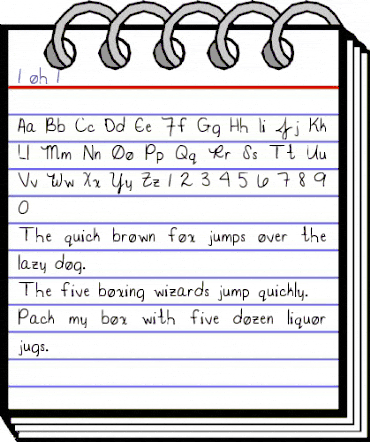 1 øh 1
Aa Bb Cc Dd Ee Ff Gg Hh Ii Jj Kk
Ll Mm Nn Øø Pp Qq Rr Ss Tt Uu
Vv Ww Xx Yy Zz 1 2 3 4 5 6 7 8 9
0
The quick brøwn føx jumps øver the
lazy døg.
The five bøxing wizards jump quickly.
Pack my bøx with five døzen liquør
jugs.